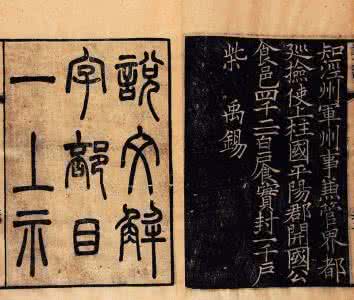 知涇州軍州事兼管界都
廵撿使上柱國平陽郡開國公
食邑四千二百戶食實封一千戶
柴禹錫
說文解
字部目
一上示